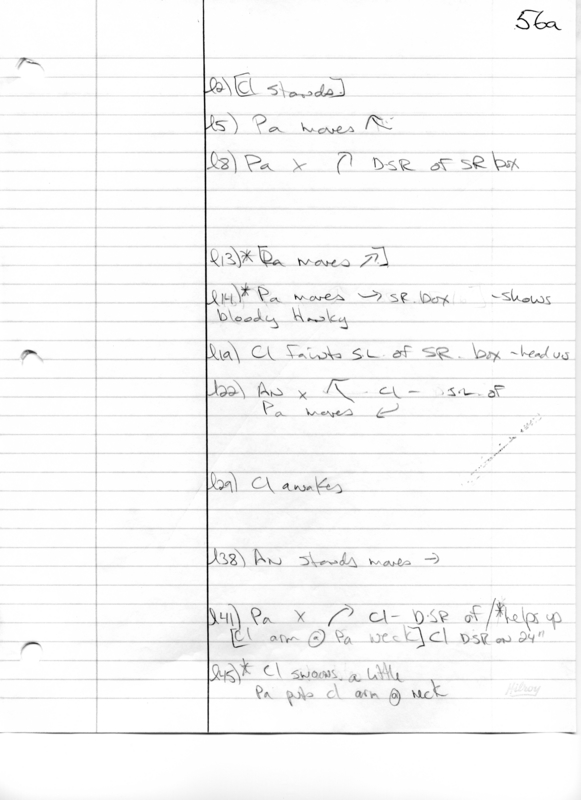 56a
l2) [Cl stands]
l5) Pa moves ↖
l8) Pa x ↗ DSR of SR box
l13)* [Pa moves ↗]
l14)* Pa moves → SR. box - shows
bloody Hanky
l19) Cl Faints SL of SR. box - head us
l22) AN x ↖ Cl - SL of
Pa moves ↙
l29) Cl awakes
l38) AN stands moves →
l41) Pa x ↗ Cl - DSR of /*helps up
[Cl arm @ Pa neck] Cl DSR on 24"
l45)* Cl swoons a little
Pa puts cl arm @ neck
Hilroy